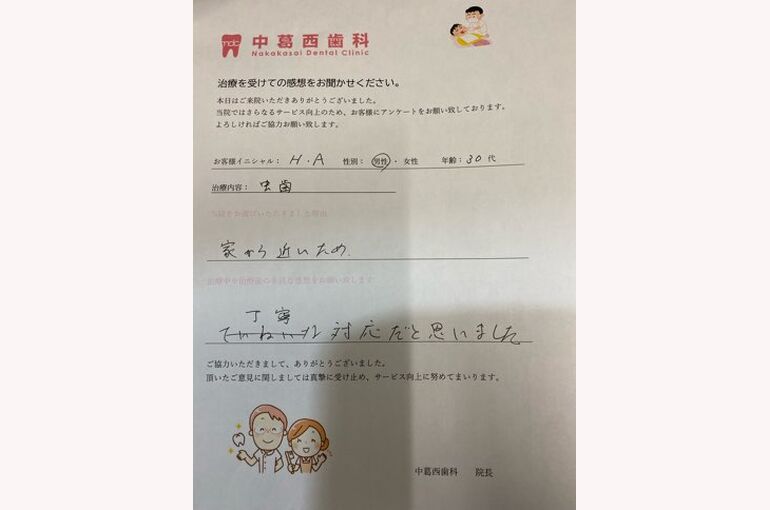 ndc 中葛西歯科
Nakakasai Dental Clinic
治療を受けての感想をお聞かせください。
本日はご来院いただきありがとうございました。
当院ではさらなるサービス向上のため、お客様にアンケートをお願い致しております。
よろしければご協力お願い致します。
お客様イニシャル： H・A 性別： 男性 ・ 女性 年齢：30代
治療内容： 虫歯
当院をお選びいただきました理由
家から近いため
治療中や治療後の率直な感想をお願い致します
丁寧
ていねいな 対応だと思いました
ご協力いただきまして、ありがとうございました。
頂いたご意見に関しましては真摯に受け止め、サービス向上に努めてまいります。
中葛西歯科 院長